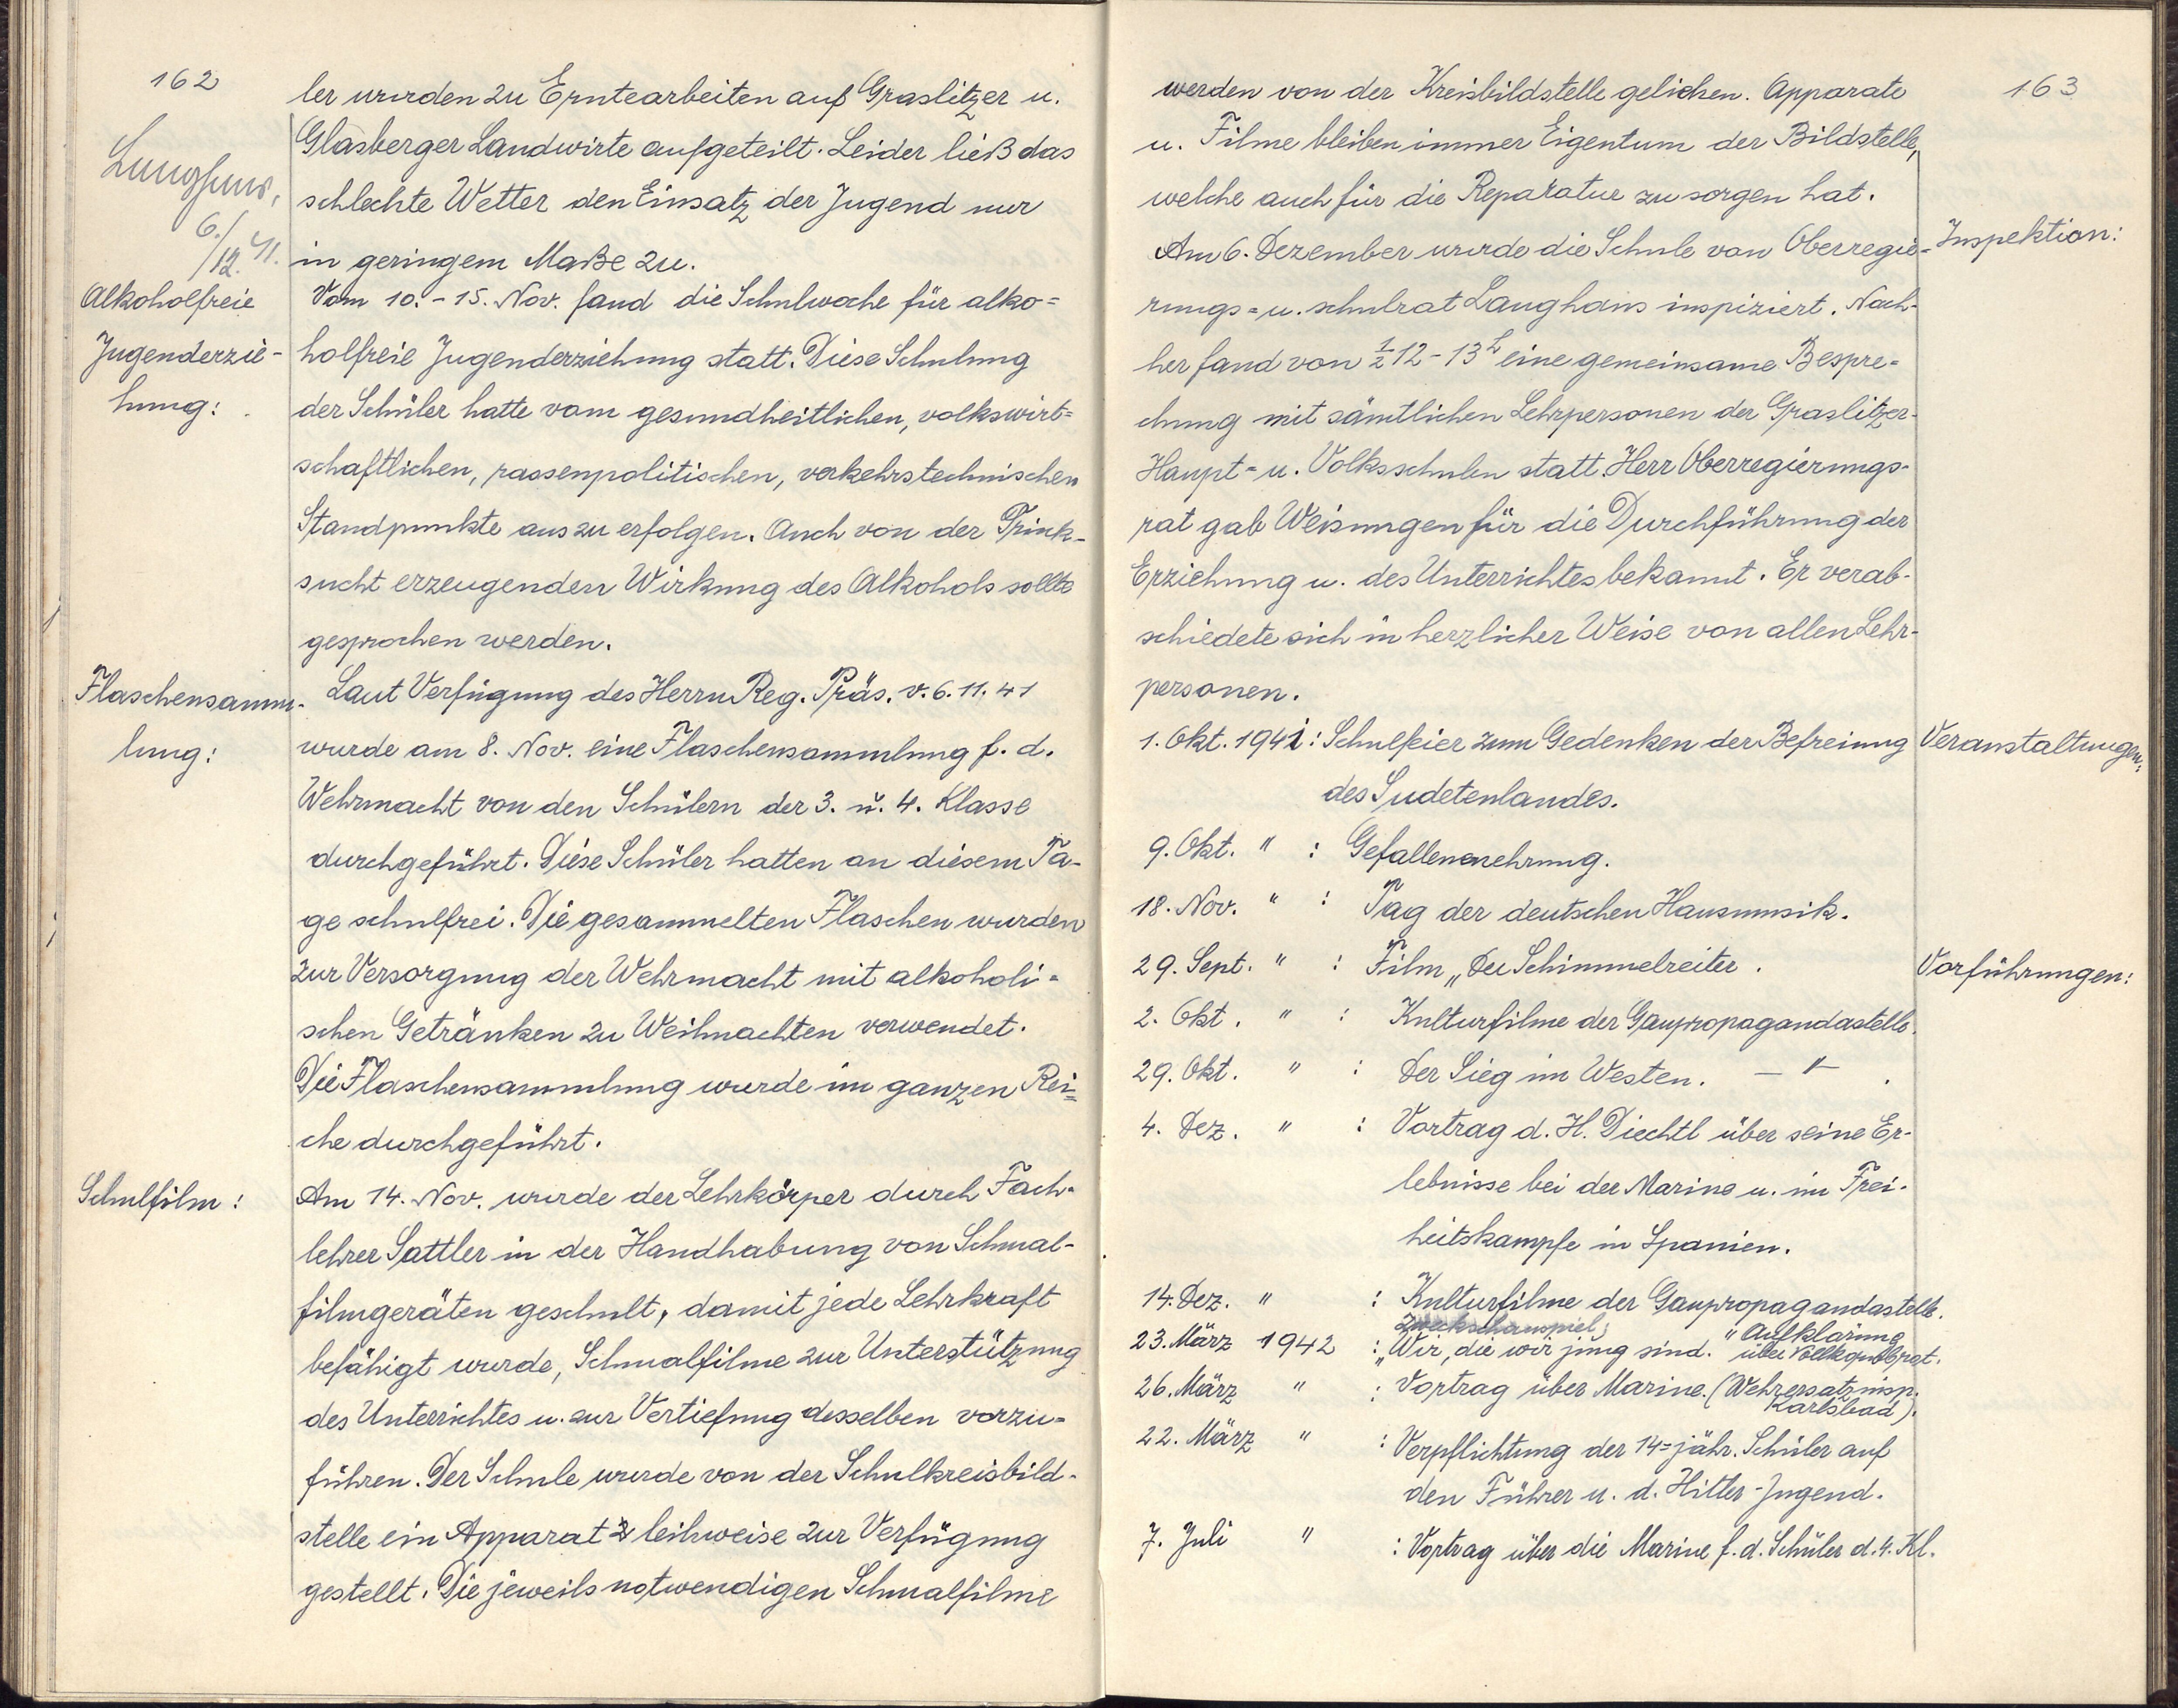 162
ler wurden zu Erntearbeiten auf Graslitzer u.
Glasberger Landwirte aufgeteilt. Leider ließ das
schlechte Wetter den Einsatz der Jugend nur
in geringem Maße zu.
Langhans,
6./12. 41.
Alkoholfreie
Jugenderzie-
hung:
Vom 10.-15. Nov. fand die Schulwoche für alko=
holfreie Jugenderziehung statt. Diese Schulung
der Schüler hatte vom gesundheitlichen, volkswirt=
schaftlichen, rassenpolitischen, verkehrstechnischen
Standpunkte aus zu erfolgen. Auch von der Trink-
sucht erzeugenden Wirkung des Alkohols sollte
gesprochen werden.
Flaschensamm-
lung:
Laut Verfügung des Herrn Reg. Präs. v. 6.11.41
wurde am 8. Nov. eine Flaschensammlung f. d.
Wehrmacht von den Schülern der 3. u. 4. Klasse
durchgeführt. Diese Schüler hatten an diesem Ta-
ge schulfrei. Die gesammelten Flaschen wurden
zur Versorgung der Wehrmacht mit alkoholi=
schen Getränken zu Weihnachten verwendet.
Die Flaschensammlung wurde im ganzen Rei=
che durchgeführt.
Schulfilm:
Am 14. Nov. wurde der Lehrkörper durch Fach-
lehrer Sattler in der Handhabung von Schmal-
filmgeräten geschult, damit jede Lehrkraft
befähigt wurde, Schmalfilme zur Unterstützung
des Unterrichtes u. zur Vertiefung desselben vorzu=
führen. Der Schule wurde von der Schulkreisbild-
stelle ein Apparat leihweise zur Verfügung
gestellt. Die jeweils notwendigen Schmalfilme
163
werden von der Kreisbildstelle geliehen. Apparate
u. Filme bleiben immer Eigentum der Bildstelle,
welche auch für die Reparatur zu sorgen hat.
Inspektion:
Am 6. Dezember wurde die Schule von Oberregie=
rungs= u. schulrat Langhans inspiziert. Nach-
her fand von ½12-13h eine gemeinsame Bespre=
chung mit sämtlichen Lehrpersonen der Graslitzer-
Haupt= u. Volksschulen statt. Herr Oberregierungs-
rat gab Weisungen für die Durchführung der
Erziehung u. des Unterrichtes bekannt. Er verab-
schiedete sich in herzlicher Weise von allen Lehr-
personen.
Veranstaltungen:
1. Okt. 1941: Schulfeier zum Gedenken der Befreiung
des Sudetenlandes.
9. Okt. " : Gefallenenehrung.
18. Nov. " : Tag der deutschen Hausmusik.
Vorführungen:
29. Sept. " : Film „Der Schimmelreiter.
2. Okt. " : Kulturfilme der Gaupropagandastelle.
29. Okt. " : Der Sieg im Westen. — " — .
4. Dez. " : Vortrag d. H. Diechtl über seine Er-
lebnisse bei der Marine u. im Frei-
heitskampfe in Spanien.
14. Dez. " : Kulturfilme der Gaupropagandastelle.
23. März 1942 : „Wir, die wir jung sind." Aufklärung
über
26. März " : Vortrag über Marine. (Wehrersatzinsp.
Karlsbad).
22. März " : Verpflichtung der 14=jähr. Schüler auf
den Führer u. d. Hitler-Jugend.
7. Juli " : Vortrag über die Marine f. d. Schüler d. 4. Kl.